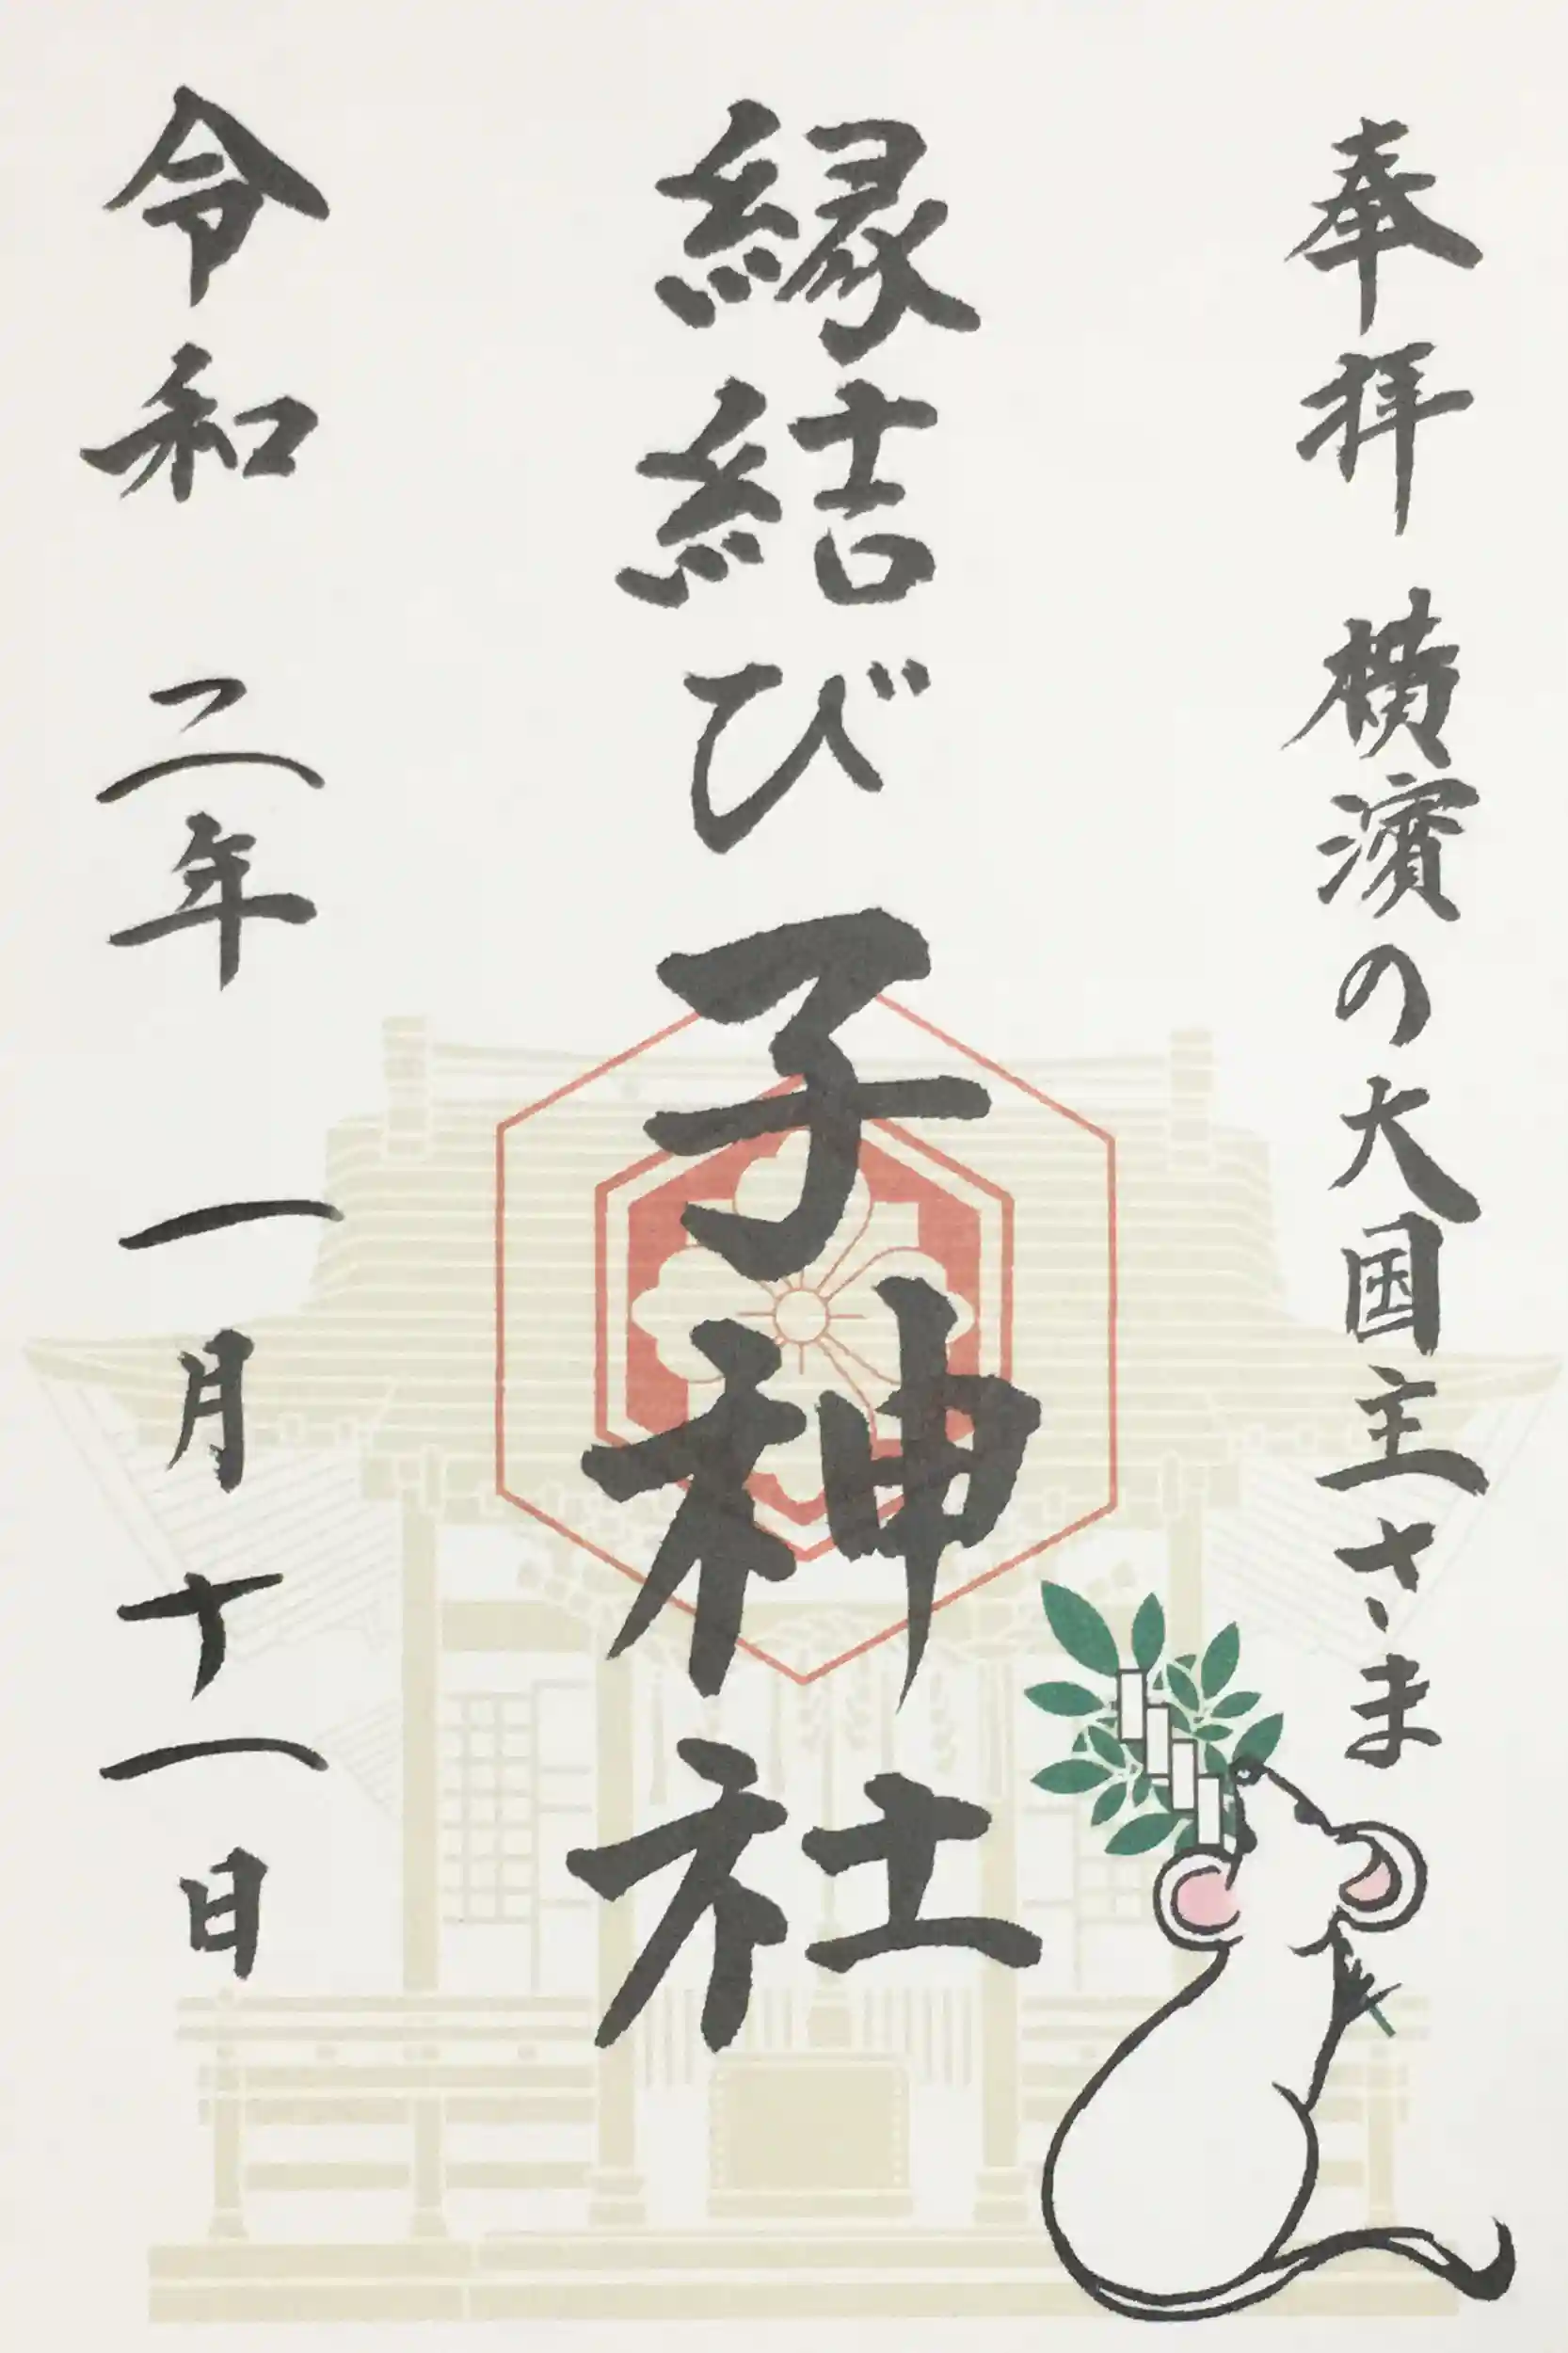 奉拝 横濱の大国主さま
縁結び 子神社
令和 二年 一月十一日